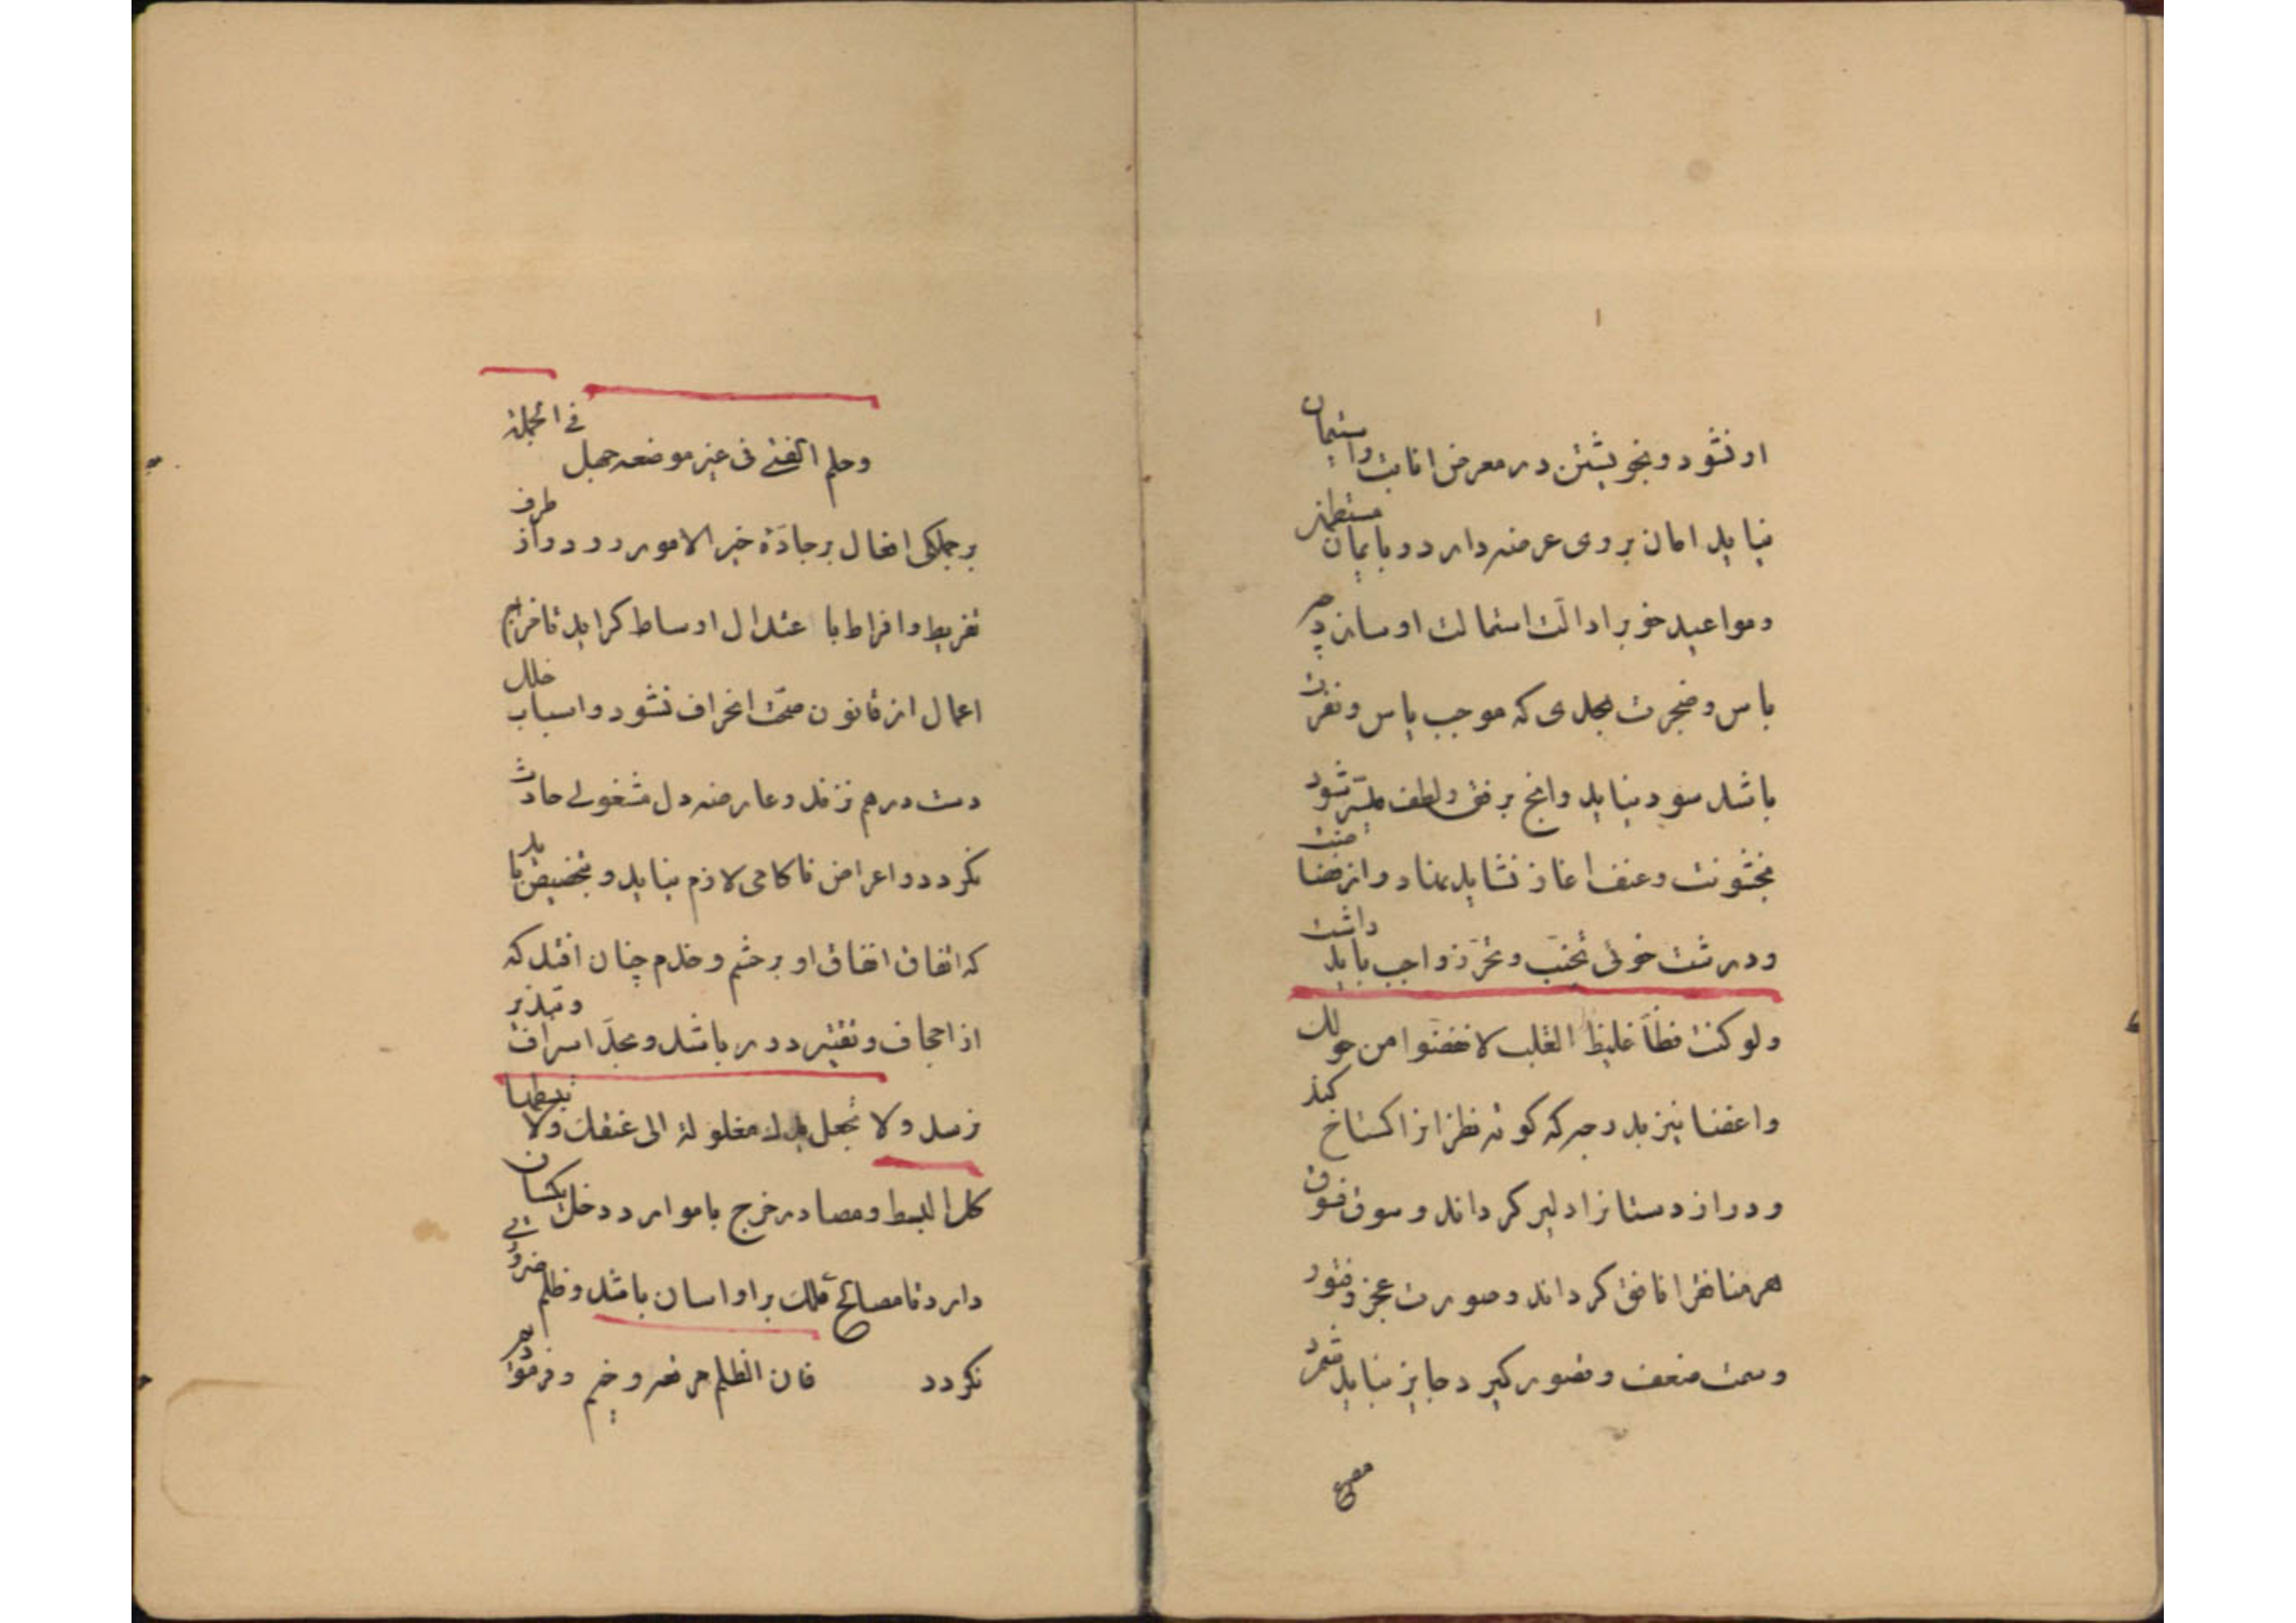 او نشود و بخویشتن در معرض انابت واستیمان
نیاید امان بر وی عرضه دارد و بایمان مستظهر
ومواعید خوبرا دالت استمالت او سازد چه
باس وضجرت بحدی که موجب یاس ونفرت
باشد سود نیاید وانچ برفق ولطف میسر شود
بخشونت وعنف اغاز نشاید نهاد واز فضاضت
ودرشت خوئی تجنّب وتحرّز واجب باید داشت
ولو کنت فظاً غلیظ القلب لانفضوا من حولک
واغضا نیز بدرجه که کوته نظرانرا کستاخ کند
ودراز دستانرا دلیر کرداند وسوق فسوق
هر منافقرا نافق کرداند وصورت عجز وفتور
وسمت ضعف وقصور کیرد جایز نباید شمرد
مصرع
وحلم الفتی فی غیر موضعه جهل فی الجمله
برجملکی افعال برجادّة خیر الامور رود واز طرف
تفریط وافراط با عتدال اوساط کراید تا مزاج
اعمال از قانون صحّت انحراف نشود واسباب خلل
دست درهم نزند وعارضه دل مشغولی حادث
نکردد واعراض ناکامی لازم نیاید وبتخصیص باید
که اتفاق انفاق او برحشم وخدم چنان افتد که
از اجحاف وتقتیر دور باشد وبحدّ اسراف وتبذیر
نرسد ولا تجعل یدک مغلولة الی عنقک ولا تبسطها
کل البسط ومصادر خرج با موارد دخل یکسان
دارد تا مصالح ملک براو اسان باشد وظلم ضروری
نکردد فان الظلم مرتعه وخیم